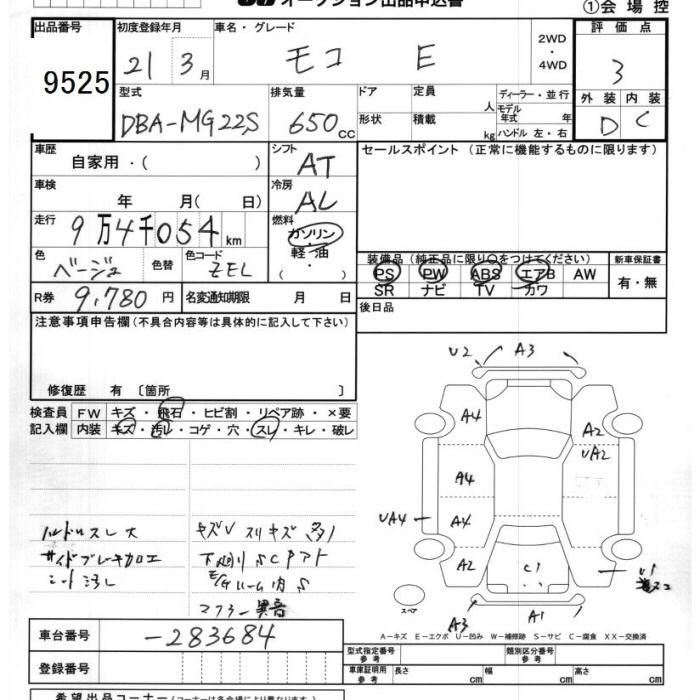 オークション出品申込書
①会場控
出品番号
9525
初度登録年月
21 3月
車名・グレード
モコ E
2WD・4WD
評価点
3
型式
DBA-MG22S
排気量
650 CC
ドア
形状
定員 人
積載 kg
ディーラー・並行
モデル年式 年
ハンドル 左・右
外装 内装
D C
車歴
自家用・( )
シフト
AT
セールスポイント (正常に機能するものに限ります)
車検
年 月( 日)
冷房
AL
走行
9万4千054km
燃料
ガソリン
軽・油
・( )
色
ベージュ
色替
色コード
ZEL
装備品(純正品に限り○をつけてください)
PS PW ABS エアB AW
SR ナビ TV カワ
新車保証書
有・無
R券 9,780円
名変通知期限 月 日
後日品
注意事項申告欄(不具合内容等は具体的に記入して下さい)
修復歴 有〔箇所 〕
検査員記入欄
FW キズ・飛石・ヒビ割・リペア跡・×要
内装 キズ・汚レ・コゲ・穴・スレ・キレ・破レ
ハンドルスレ大
サイドブレーキカエ
シート汚レ
キズV スリキズ多
下廻り SC
E/Gルーム内S
マフラー異音
U2 A3
A4
A2
UA2
A4
UA4
A4
A2
C1
U1
A3
A1
スペア
A-キズ E-エクボ U-凹み W-補修跡 S-サビ C-腐食 XX-交換済
車台番号
-283684
登録番号
型式指定番号 参考
類別区分番号 参考
車庫証明用 参考
長さ cm
幅 cm
高さ cm
希望出品コーナー(コーナーは各会場により異なります)